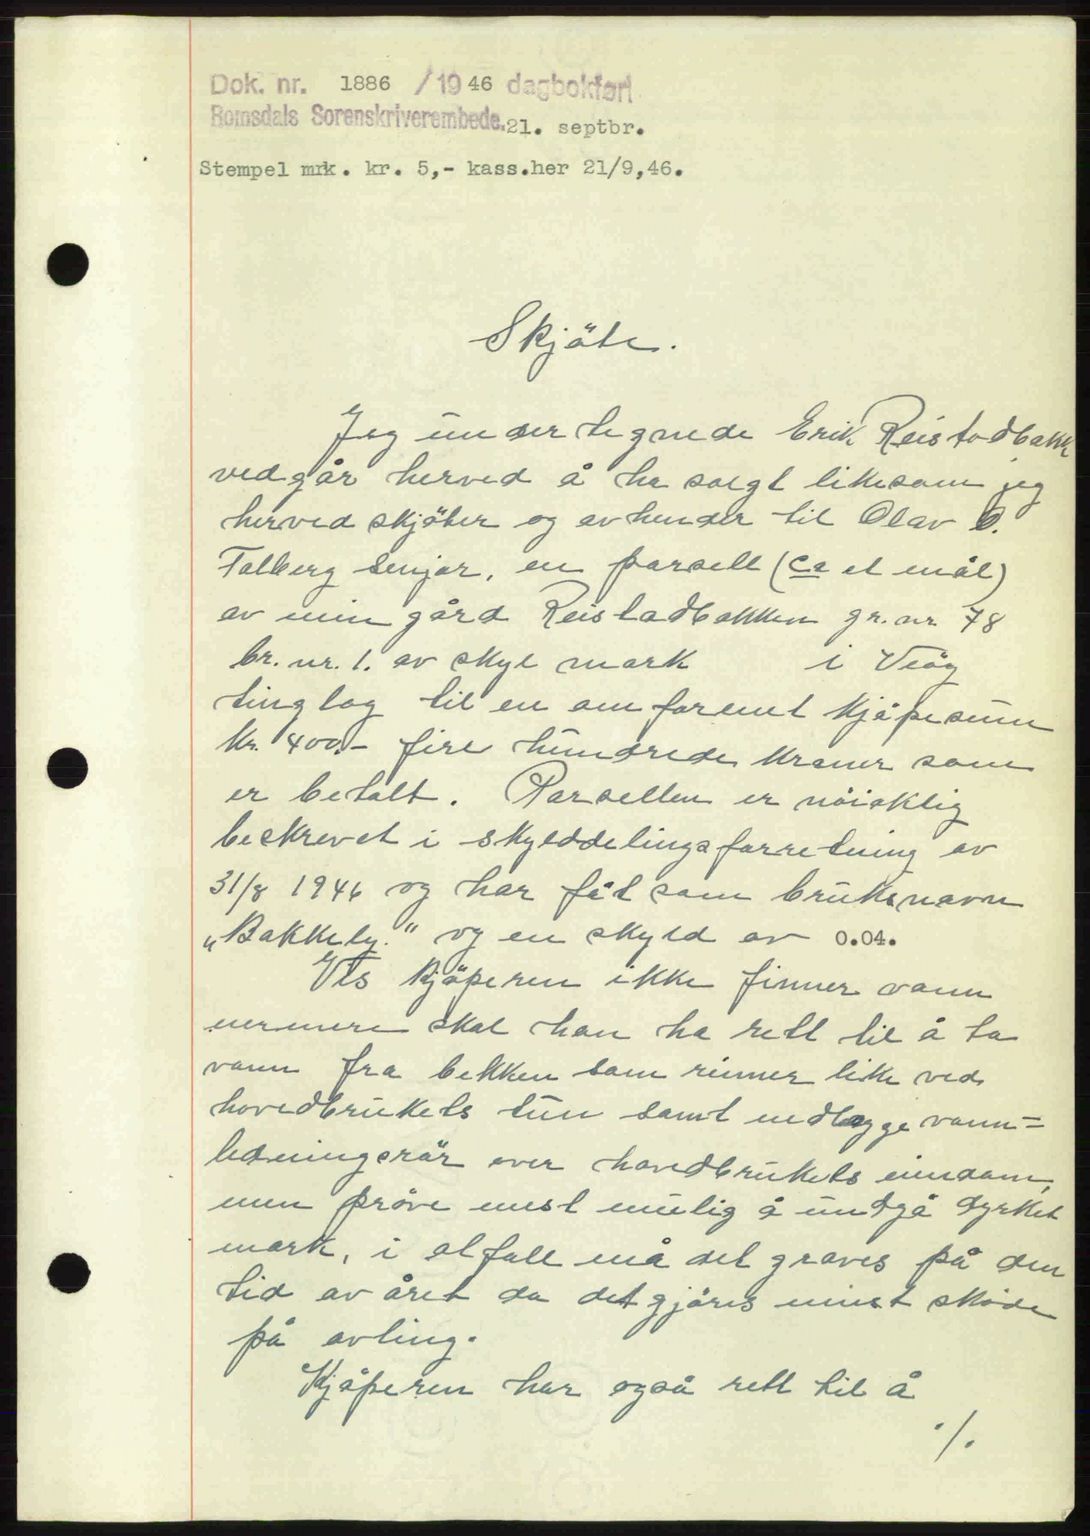 Dok. nr. 1886 /1946 dagbokført
Romsdals Sorenskriverembede. 21. septbr.
Stempel mrk. kr. 5,- kass.her 21/9,46.
Skjöte.
Jeg undertegnede Erik Reistadbakk
vedgår herved å ha solgt likesom jeg
herved skjöter og avhender til Olav O.
Talberg senjor, en parsell (ca et mål)
av min gård Reistadbakken gr. nr 78
br. nr. 1. av skyl mark i Veöy
tinglag til en omforenet kjöpesum
kr. 400.- fire hundrede kroner som
er betalt. Parsellen er nöiaktig
beskrevet i skylddelingsforretning av
31/8 1946 og har fåt som bruksnavn
„Bakkely." og en skyld av 0.04.
Vis kjöperen ikke finner vann
nermere skal han ha rett til å ta
vann fra bekken som rinner like ved
hovedbrukets tun samt nedlegge vann=
ledningsrör over hovedbrukets eiendom,
men pröve mest mulig å undgå dyrket
mark, i alfall må det graves på den
tid av året da det gjöres minst skade
på avling.
Kjöperen har også rett til å
./.